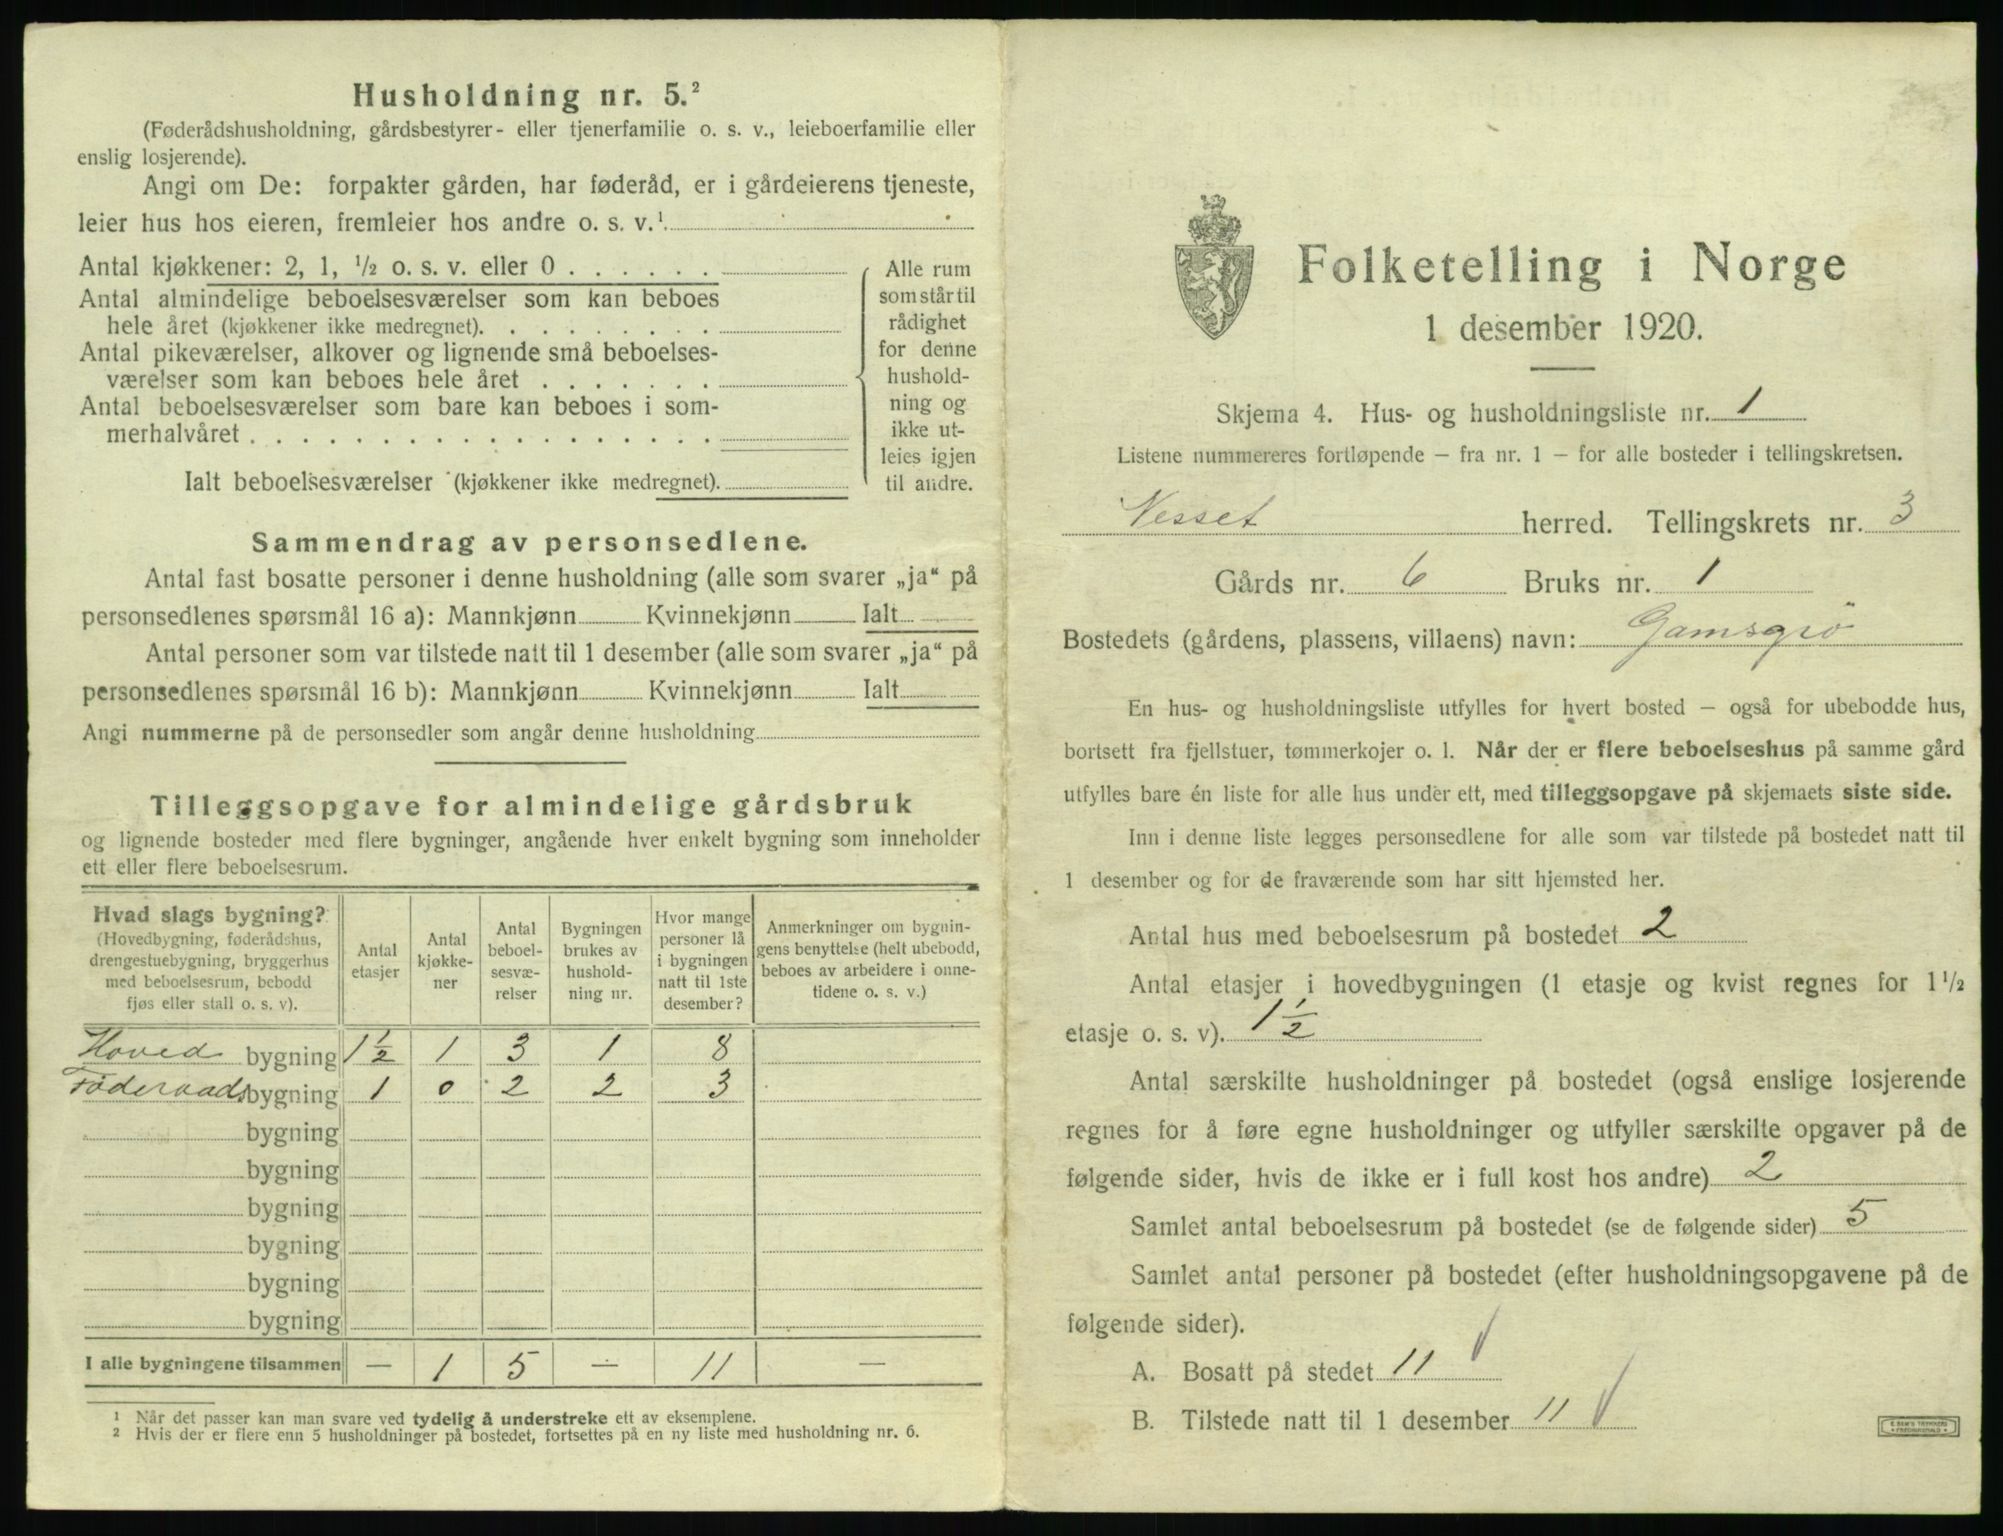 Husholdning nr. 5.²
(Føderådshusholdning, gårdsbestyrer- eller tjenerfamilie o. s. v., leieboerfamilie eller
enslig losjerende).
Angi om De: forpakter gården, har føderåd, er i gårdeierens tjeneste,
leier hus hos eieren, fremleier hos andre o. s. v.¹
Antal kjøkkener: 2, 1, ½ o. s. v. eller 0 . . . . . .
Antal almindelige beboelsesværelser som kan beboes
hele året (kjøkkener ikke medregnet). . . . . . . . .
Antal pikeværelser, alkover og lignende små beboelses-
værelser som kan beboes hele året . . . . . . .
Antal beboelsesværelser som bare kan beboes i som-
merhalvåret . . . . . . . . . . . . . . . . . .
Ialt beboelsesværelser (kjøkkener ikke medregnet).
Alle rum
som står til
rådighet
for denne
hushold-
ning og
ikke ut-
leies igjen
til andre.
Sammendrag av personsedlene.
Antal fast bosatte personer i denne husholdning (alle som svarer „ja“ på
personsedlenes spørsmål 16 a): Mannkjønn Kvinnekjønn Ialt
Antal personer som var tilstede natt til 1 desember (alle som svarer „ja“ på
personsedlenes spørsmål 16 b): Mannkjønn Kvinnekjønn Ialt
Angi nummerne på de personsedler som angår denne husholdning
Tilleggsopgave for almindelige gårdsbruk
og lignende bosteder med flere bygninger, angående hver enkelt bygning som inneholder
ett eller flere beboelsesrum.
Hvad slags bygning?
(Hovedbygning, føderådshus,
drengestuebygning, bryggerhus
med beboelsesrum, bebodd
fjøs eller stall o. s. v).
Antal
etasjer
Antal
kjøkke-
ner
Antal
beboel-
sesvæ-
relser
Bygningen
brukes av
hushold-
ning nr.
Hvor mange
personer lå
i bygningen
natt til 1ste
desember?
Anmerkninger om bygnin-
gens benyttelse (helt ubebodd,
beboes av arbeidere i onne-
tidene o. s. v.)
Hoved bygning 1½ 1 3 1 8
Föderaads bygning 1 0 2 2 3
bygning
bygning
bygning
bygning
bygning
bygning
I alle bygningene tilsammen — 1 5 — 11 —
¹ Når det passer kan man svare ved tydelig å understreke ett av eksemplene.
² Hvis der er flere enn 5 husholdninger på bostedet, fortsettes på en ny liste med husholdning nr. 6.
Folketelling i Norge
1 desember 1920.
Skjema 4. Hus- og husholdningsliste nr. 1
Listene nummereres fortløpende — fra nr. 1 — for alle bosteder i tellingskretsen.
Nesset herred. Tellingskrets nr. 3
Gårds nr. 6 Bruks nr. 1
Bostedets (gårdens, plassens, villaens) navn: Gamsgrö
En hus- og husholdningsliste utfylles for hvert bosted — også for ubebodde hus,
bortsett fra fjellstuer, tømmerkojer o. l. Når der er flere beboelseshus på samme gård
utfylles bare én liste for alle hus under ett, med tilleggsopgave på skjemaets siste side.
Inn i denne liste legges personsedlene for alle som var tilstede på bostedet natt til
1 desember og for de fraværende som har sitt hjemsted her.
Antal hus med beboelsesrum på bostedet 2
Antal etasjer i hovedbygningen (1 etasje og kvist regnes for 1½
etasje o. s. v). 1½
Antal særskilte husholdninger på bostedet (også enslige losjerende
regnes for å føre egne husholdninger og utfyller særskilte opgaver på de
følgende sider, hvis de ikke er i full kost hos andre) 2
Samlet antal beboelsesrum på bostedet (se de følgende sider) 5
Samlet antal personer på bostedet (efter husholdningsopgavene på de
følgende sider).
A. Bosatt på stedet 11
B. Tilstede natt til 1 desember 11